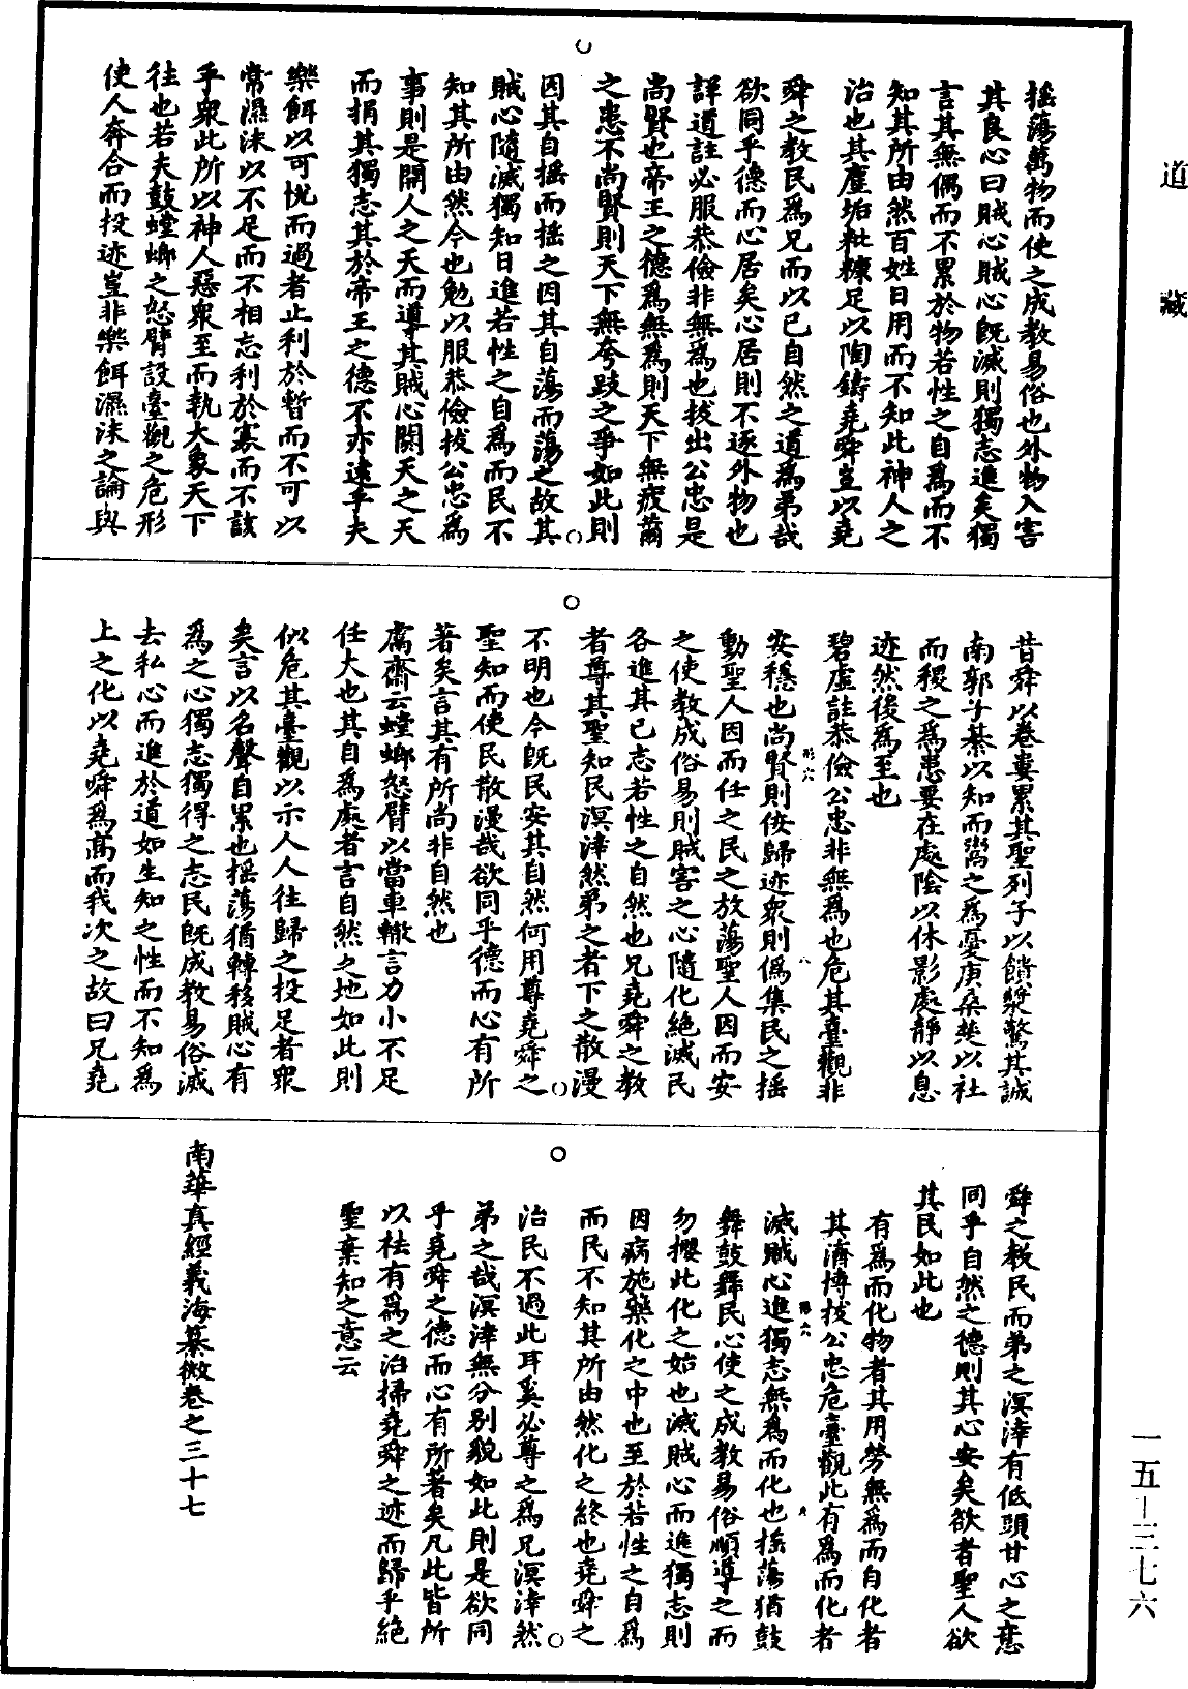 道藏
搖蕩萬物而使之成教易俗也外物入害
其良心曰賊心賊心既滅則獨志進矣獨
言其無偶而不累於物若性之自為而不
知其所由然百姓日用而不知此神人之
治也其塵垢粃糠足以陶鑄堯舜豈以堯
舜之教民為兄而以已自然之道為弟哉
欲同乎德而心居矣心居則不逐外物也
詳道註必服恭儉非無為也拔出公忠是
尚賢也帝王之德為無為則天下無疲薾
之患不尚賢則天下無夸跂之爭如此則
因其自搖而搖之因其自蕩而蕩之故其
賊心隨滅獨知日進若性之自為而民不
知其所由然今也勉以服恭儉拔公忠為
事則是開人之天而導其賊心閼天之天
而捐其獨志其於帝王之德不亦遠乎夫
樂餌以可悅而過者止利於暫而不可以
常濕沫以不足而不相忘利於寡而不該
乎眾此所以神人惡眾至而執大象天下
往也若夫鼓螳螂之怒臂設臺觀之危形
使人奔合而投迹豈非樂餌濕沫之論與
昔舜以卷婁累其聖列子以饋漿驚其誠
南郭子綦以知而鬻之為憂庚桑楚以社
而稷之為患要在處陰以休影處靜以息
迹然後為至也
碧虛註恭儉公忠非無為也危其臺觀非
安穩也尚賢則佞歸迹眾則偽集民之搖
動聖人因而任之民之放蕩聖人因而安
之使教成俗易則賊害之心隨化絕滅民
各進其已志若性之自然也兄堯舜之教
者尊其聖知民溟涬然弟之者下之散漫
不明也今既民安其自然何用尊堯舜之
聖知而使民散漫哉欲同乎德而心有所
著矣言其有所尚非自然也
鬳齋云螳螂怒臂以當車轍言力小不足
任大也其自為處者言自然之地如此則
似危其臺觀以示人人往歸之投足者眾
矣言以名聲自累也搖蕩猶轉移賊心有
為之心獨志獨得之志民既成教易俗滅
去私心而進於道如生知之性而不知為
上之化以堯舜為高而我次之故曰兄堯
舜之教民而弟之溟涬有低頭甘心之意
同乎自然之德則其心安矣欲者聖人欲
其民如此也
有為而化物者其用勞無為而自化者
其濟博拔公忠危臺觀此有為而化者
滅賊心進獨志無為而化也搖蕩猶鼓
舞鼓舞民心使之成教易俗順導之而
勿攖此化之始也滅賊心而進獨志則
因病施藥化之中也至於若性之自為
而民不知其所由然化之終也堯舜之
治民不過此耳奚必尊之為兄溟涬然
弟之哉溟涬無分別貌如此則是欲同
乎堯舜之德而心有所著矣凡此皆所
以袪有為之治掃堯舜之迹而歸乎絕
聖棄知之意云
南華真經義海纂微卷之三十七
一五—三七六